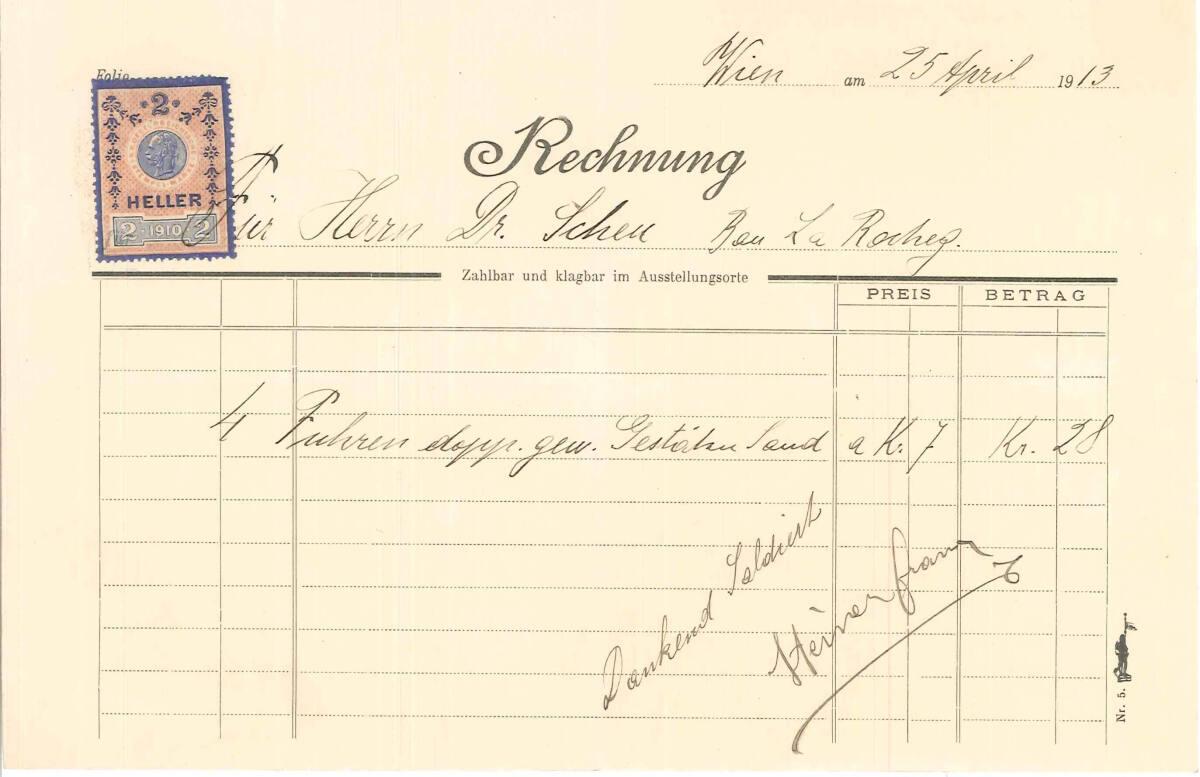 Folio
Wien am 25 April 1913
2
HELLER
2 1910 2
Rechnung
Für Herrn Dr. Scheu Bau La Rocheg.
Zahlbar und klagbar im Ausstellungsorte
PREIS BETRAG
4 Fuhren dopp. gew. Sand a Kr. 7 Kr. 28
Dankend Saldiert
Franz
Nr. 5.